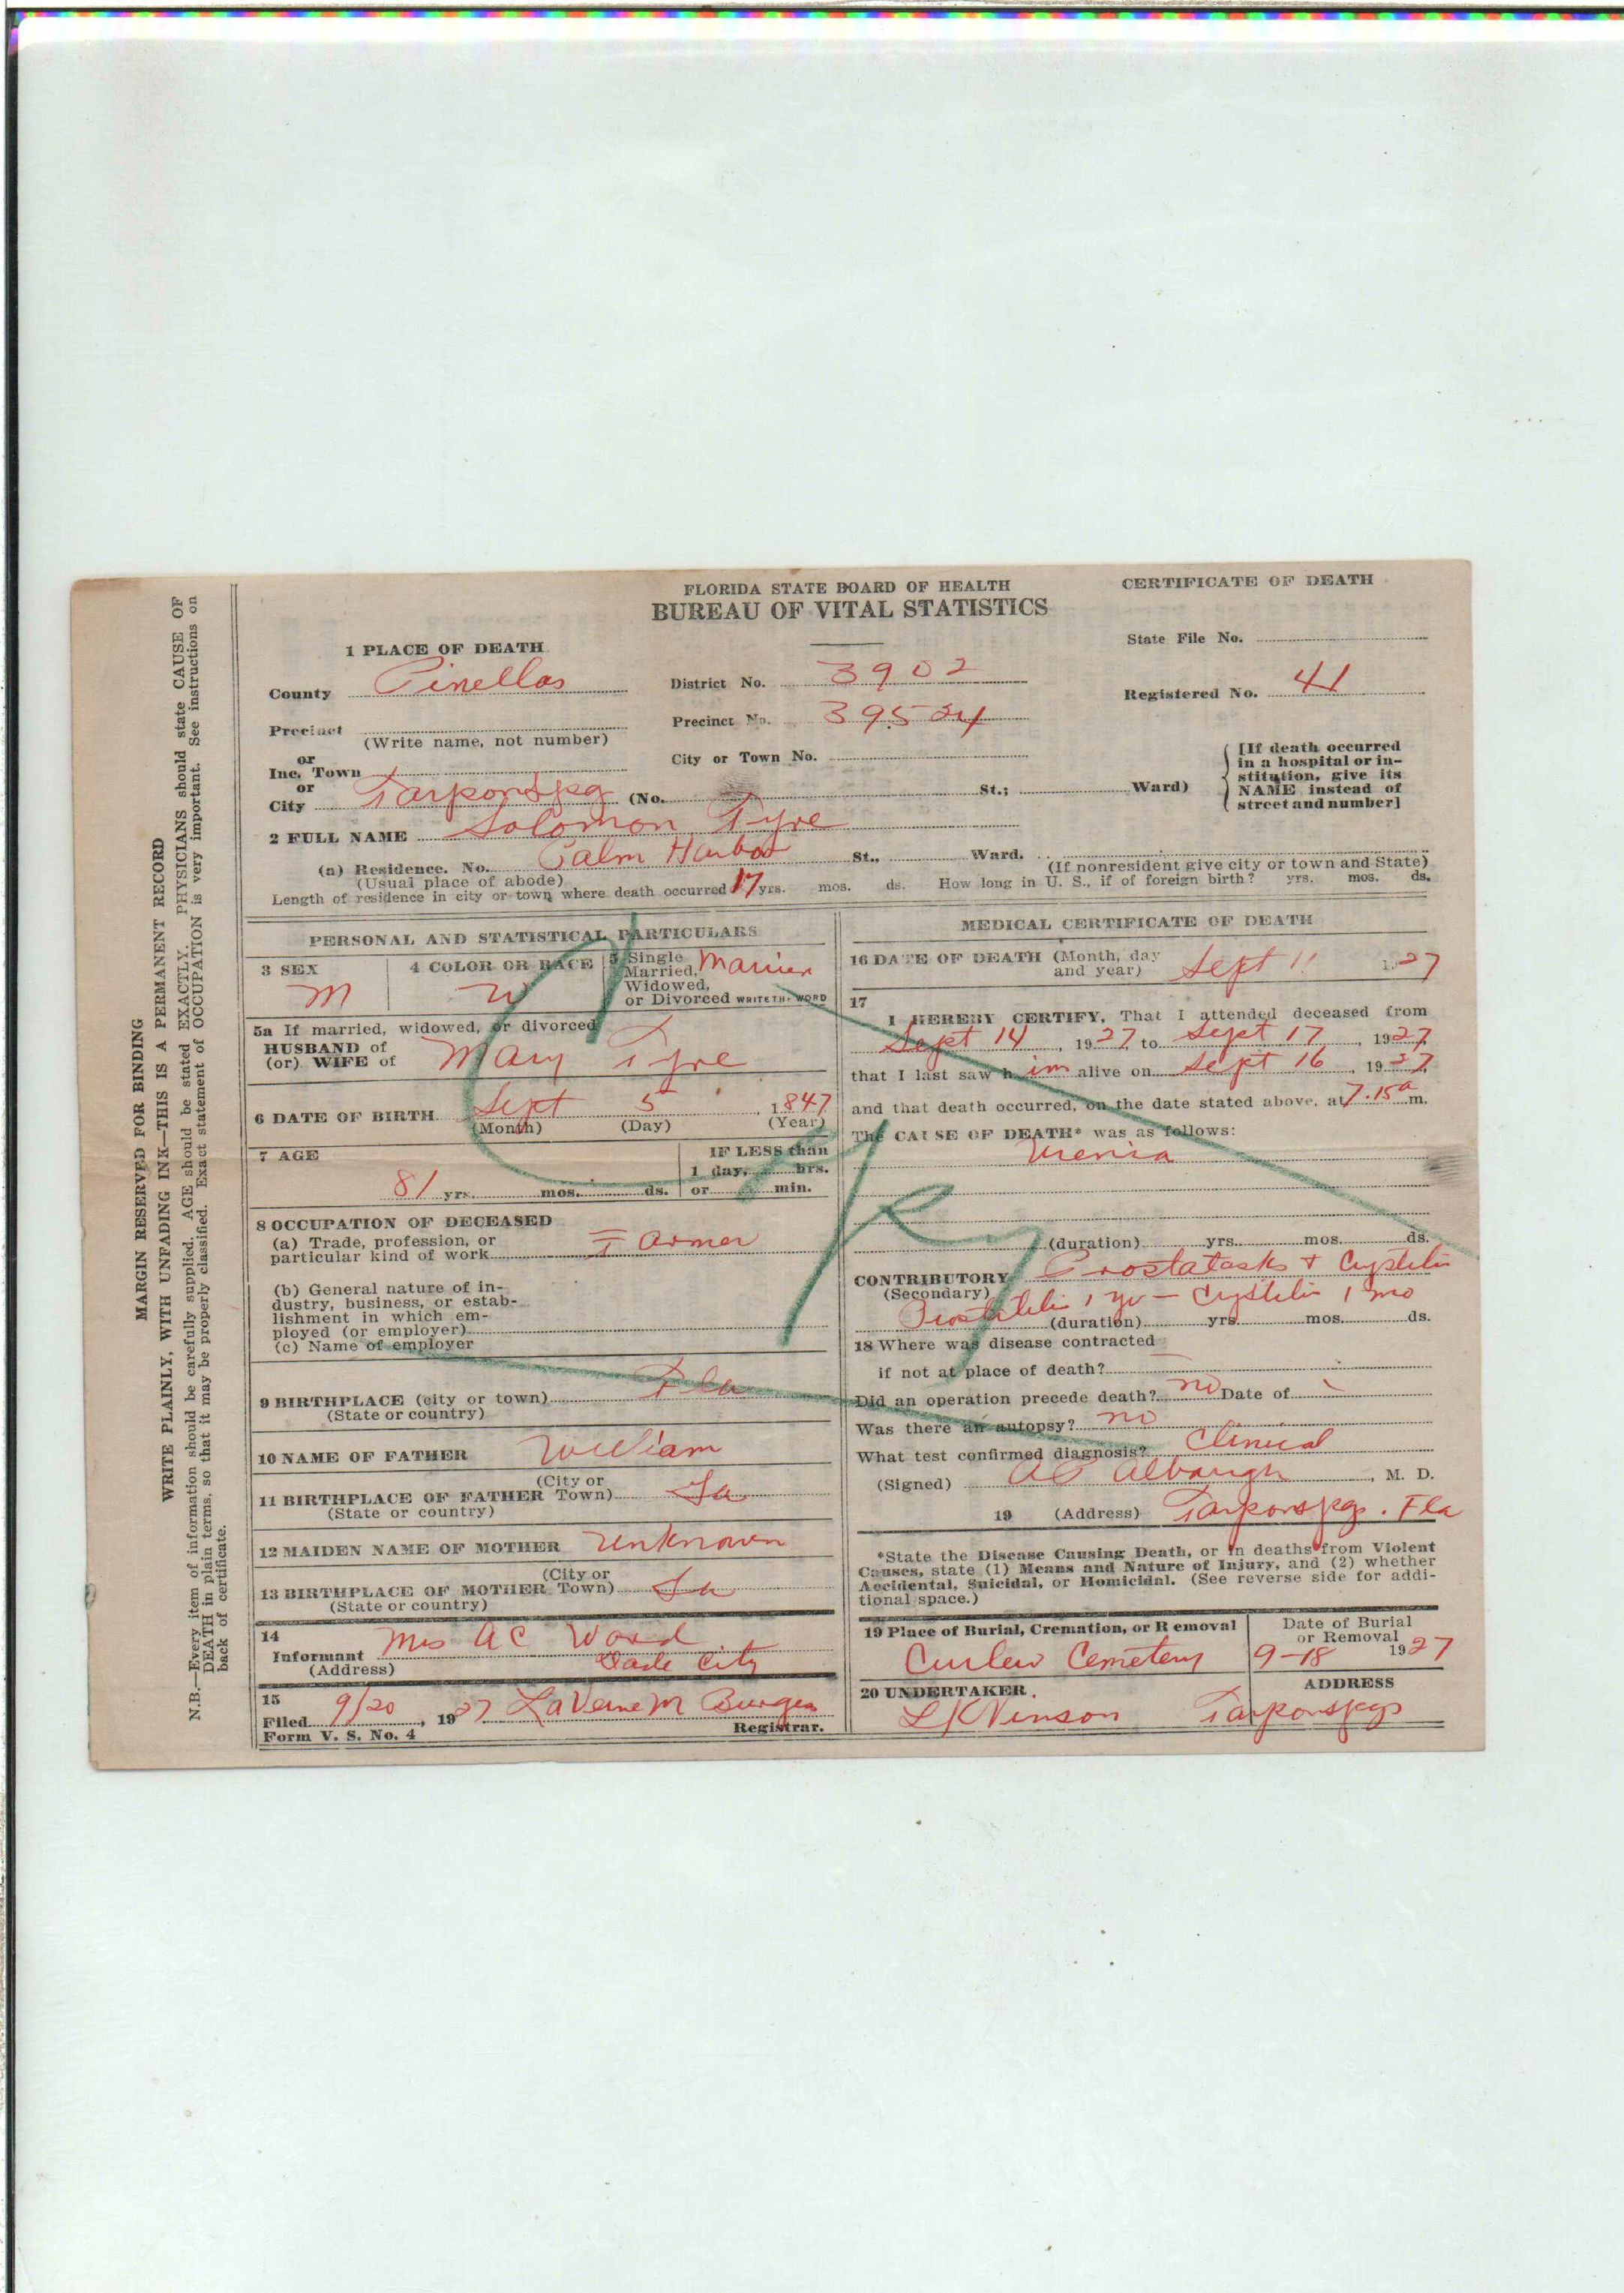 FLORIDA STATE BOARD OF HEALTH
BUREAU OF VITAL STATISTICS
CERTIFICATE OF DEATH
State File No.
1 PLACE OF DEATH
County Pinellas
District No. 3902
Registered No. 41
Precinct
(Write name, not number)
Precinct No.
or
Inc. Town
City or Town No.
or
City TarponSpg (No. St.; Ward)
[If death occurred
in a hospital or in-
stitution, give its
NAME instead of
street and number]
2 FULL NAME Solomon Tyre
(a) Residence. No. Palm Harbor St., Ward.
(Usual place of abode)
(If nonresident give city or town and State)
Length of residence in city or town where death occurred 17 yrs. mos. ds. How long in U. S., if of foreign birth? yrs. mos. ds.
PERSONAL AND STATISTICAL PARTICULARS
3 SEX
M
4 COLOR OR RACE
W
5 Single
Married,
Widowed,
or Divorced WRITE THE WORD
Married
5a If married, widowed, or divorced
HUSBAND of
(or) WIFE of Mary Tyre
6 DATE OF BIRTH Sept 5, 1847
(Month) (Day) (Year)
7 AGE
81 yrs. mos. ds.
IF LESS than
1 day, hrs.
or min.
8 OCCUPATION OF DECEASED
(a) Trade, profession, or
particular kind of work Farmer
(b) General nature of in-
dustry, business, or estab-
lishment in which em-
ployed (or employer)
(c) Name of employer
9 BIRTHPLACE (city or town) Fla
(State or country)
10 NAME OF FATHER William
11 BIRTHPLACE OF FATHER (City or Town) Ga
(State or country)
12 MAIDEN NAME OF MOTHER Unknown
13 BIRTHPLACE OF MOTHER (City or Town) Ga
(State or country)
14
Informant Mrs AC Ward
(Address) Dade City
15
Filed 9/20, 1927 LaVerne M Burges
Registrar.
Form V. S. No. 4
MEDICAL CERTIFICATE OF DEATH
16 DATE OF DEATH (Month, day
and year) Sept 1927
17
I HEREBY CERTIFY, That I attended deceased from
Sept 14, 1927 to Sept 17, 1927
that I last saw him alive on Sept 16, 1927
and that death occurred, on the date stated above, at 7.15a m.
The CAUSE OF DEATH* was as follows:
Uremia
(duration) yrs. mos. ds.
CONTRIBUTORY + Cystitis
(Secondary)
Prostatitis 1 yr - Cystitis 1 mo
(duration) yrs. mos. ds.
18 Where was disease contracted
if not at place of death?
Did an operation precede death? no Date of
Was there an autopsy? no
What test confirmed diagnosis? Clinical
(Signed) AP Albaugh, M. D.
19 (Address) Tarponspgs. Fla
*State the Disease Causing Death, or in deaths from Violent
Causes, state (1) Means and Nature of Injury, and (2) whether
Accidental, Suicidal, or Homicidal. (See reverse side for addi-
tional space.)
19 Place of Burial, Cremation, or Removal
Curlew Cemetery
Date of Burial
or Removal
9-18 1927
20 UNDERTAKER
ADDRESS
Vinson Tarponspgs
MARGIN RESERVED FOR BINDING
WRITE PLAINLY, WITH UNFADING INK—THIS IS A PERMANENT RECORD
N.B.—Every item of information should be carefully supplied. AGE should be stated EXACTLY. PHYSICIANS should state CAUSE OF
DEATH in plain terms, so that it may be properly classified. Exact statement of OCCUPATION is very important. See instructions on
back of certificate.